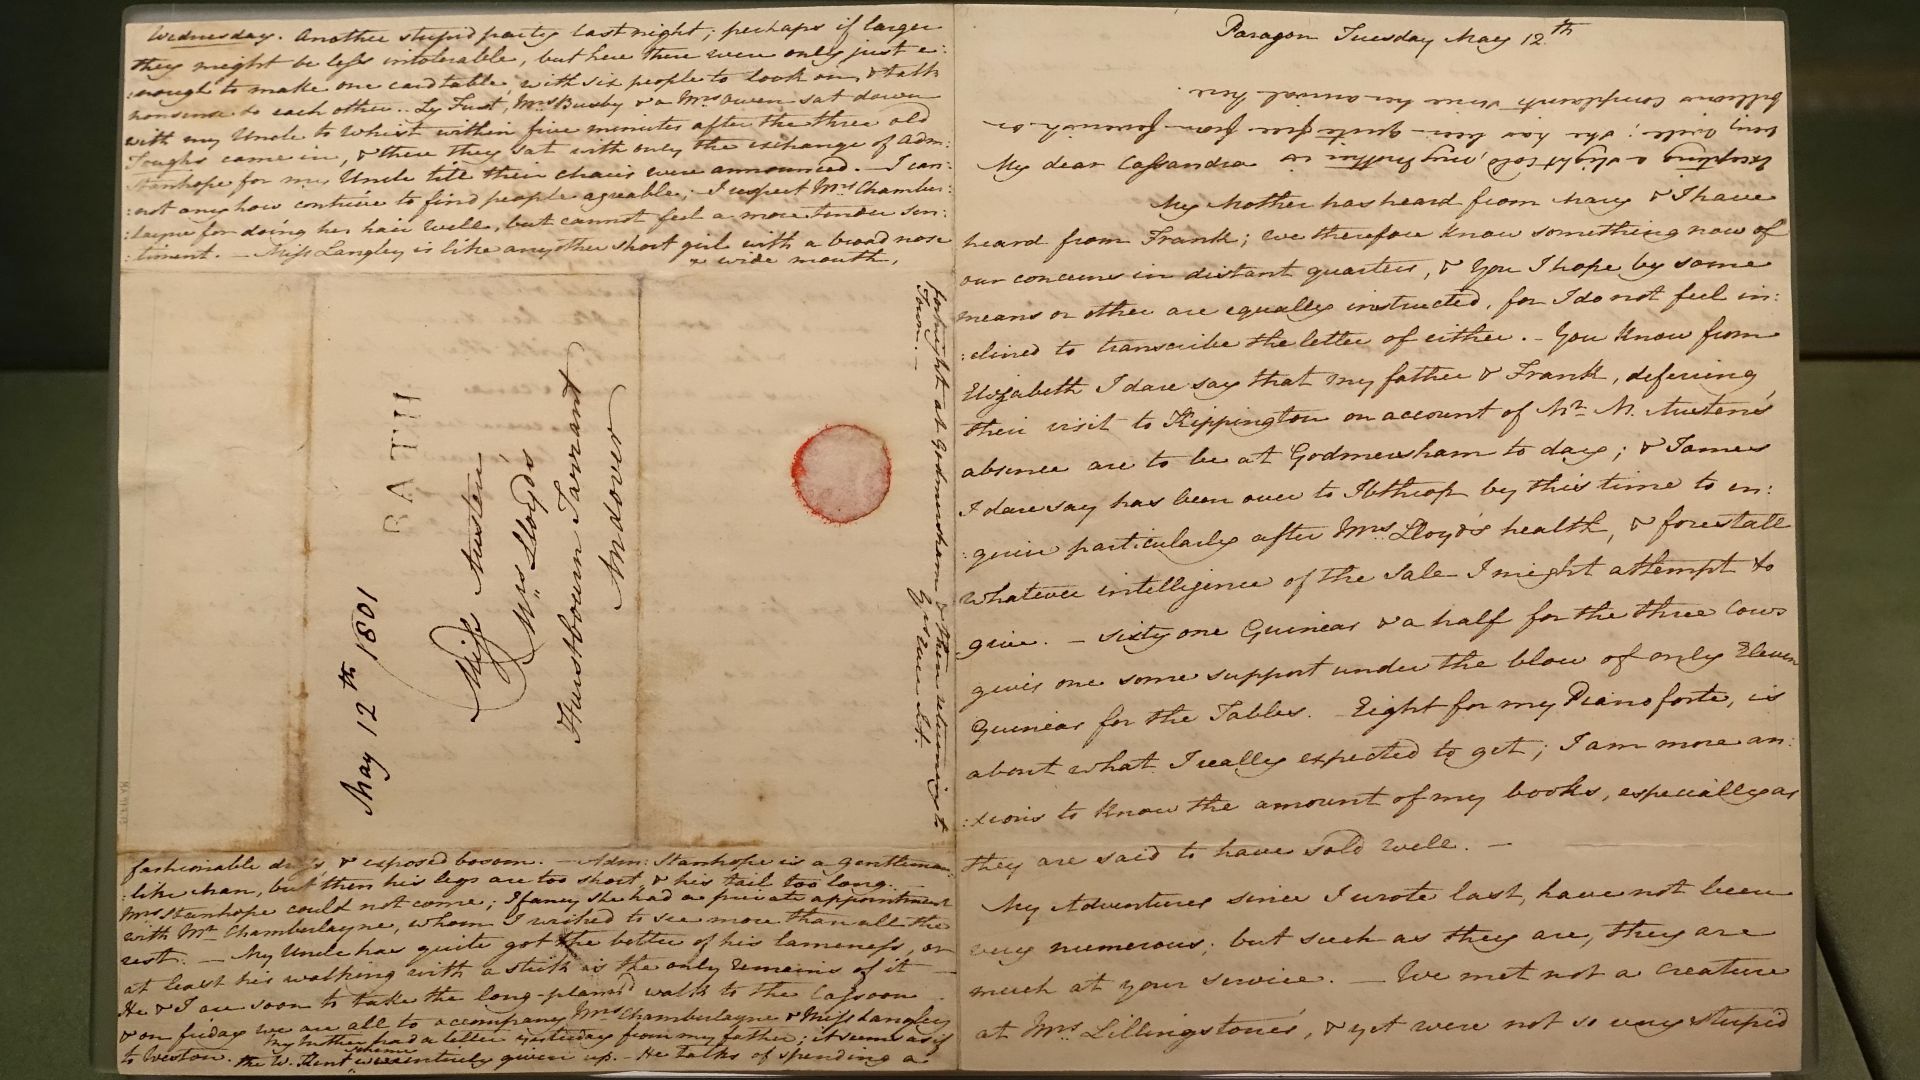 Wednesday. Another stupid party last night; perhaps if larger
they might be less intolerable, but here there were only just e:
:nough to make one card table, with six people to look on, & talk
nonsense to each other. Ly Fust, Mrs Busby & a Mrs Owen sat down
with my Uncle to Whist within five minutes after the three old
Toughs came in, & there they sat with only the exchange of Adm:
Stanhope for my Uncle till their chairs were announced. — I can:
:not anyhow continue to find people agreable; I respect Mrs Chamber:
:layne for doing her hair well, but cannot feel a more tender sen:
:timent. — Miss Langley is like any other short girl with a broad nose
& wide mouth,
fashionable dress, & exposed bosom. — Adm: Stanhope is a gentleman
:like Man, but then his legs are too short, & his tail too long. —
Mrs Stanhope could not come; I fancy she had a private appointment
with Mr Chamberlayne, whom I wished to see more than all the
rest. — My Uncle has quite got the better of his lameness, or
at least his walking with a stick is the only remains of it —
He & I are soon to take the long-plann'd walk to the Cassoon —
& on friday we are all to accompany Mrs Chamberlayne & Miss Langley
to Weston. My Mother had a letter yesterday from my father; it seems as if
the W. Kent scheme were entirely given up. — He talks of spending a
fortnight at Godmersham & then returning to
Town. — Yrs Ever JA.
BATH
May 12th 1801
Miss Austen
Mrs Lloyd's
Hurstbourn Tarrant
Andover
Paragon Tuesday May 12th
My dear Cassandra
My Mother has heard from Mary & I have
heard from Frank; we therefore know something now of
our concerns in distant quarters, & You I hope by some
means or other are equally instructed, for I do not feel in:
:clined to transcribe the letter of either. — You know from
Elizabeth I dare say that my father & Frank, deferring
their visit to Kippington on account of Mr M. Austen's
absence are to be at Godmersham to day; & James
I dare say has been over to Ibthrop by this time to en:
:quire particularly after Mrs Lloyd's health, & forestall
whatever intelligence of the Sale I might attempt to
give. — Sixty one Guineas & a half for the three Cows
gives one some support under the blow of only Eleven
Guineas for the Tables. — Eight for my Pianoforte, is
about what I really expected to get; I am more an:
:xious to know the amount of my books, especially as
they are said to have sold well. —
My Adventures since I wrote last, have not been
very numerous; but such as they are, they are
much at your service. — We met not a creature
at Mrs Lillingstone's, & yet were not so very stupid
Excepting a slight cold, my Mother is
very well; she has been quite free from feverish or
bilious complaints since her arrival here.